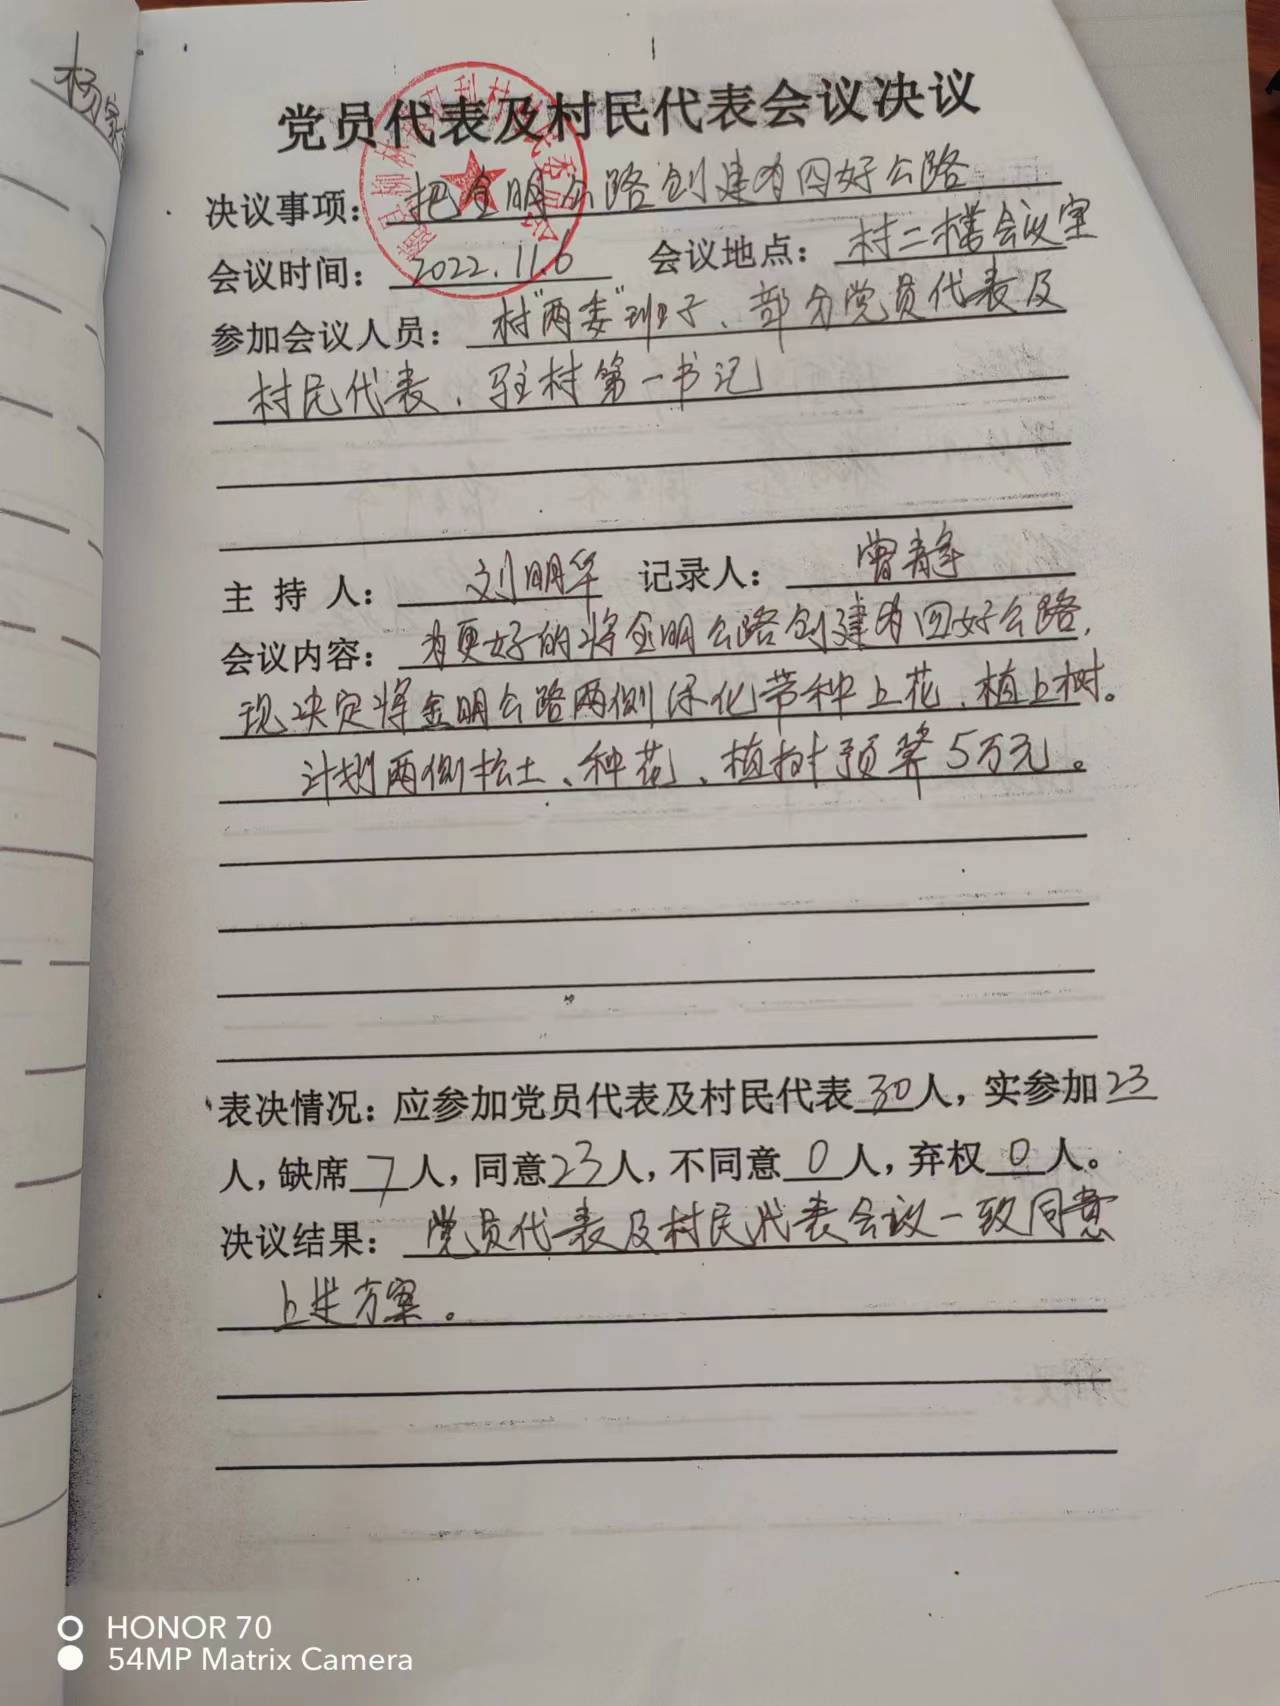 杨家
党员代表及村民代表会议决议
决议事项：把金明公路创建为四好公路
会议时间：2022.11.6 会议地点：村二楼会议室
参加会议人员：村“两委”班子、部分党员代表及
村民代表、驻村第一书记
主持人：刘明华 记录人：曾静
会议内容：为更好的将金明公路创建为四好公路，
现决定将金明公路两侧绿化带种上花、植上树。
计划两侧松土、种花、植树预算5万元。
表决情况：应参加党员代表及村民代表30人，实参加23
人，缺席7人，同意23人，不同意0人，弃权0人。
决议结果：党员代表及村民代表会议一致同意
上述方案。
HONOR 70
54MP Matrix Camera